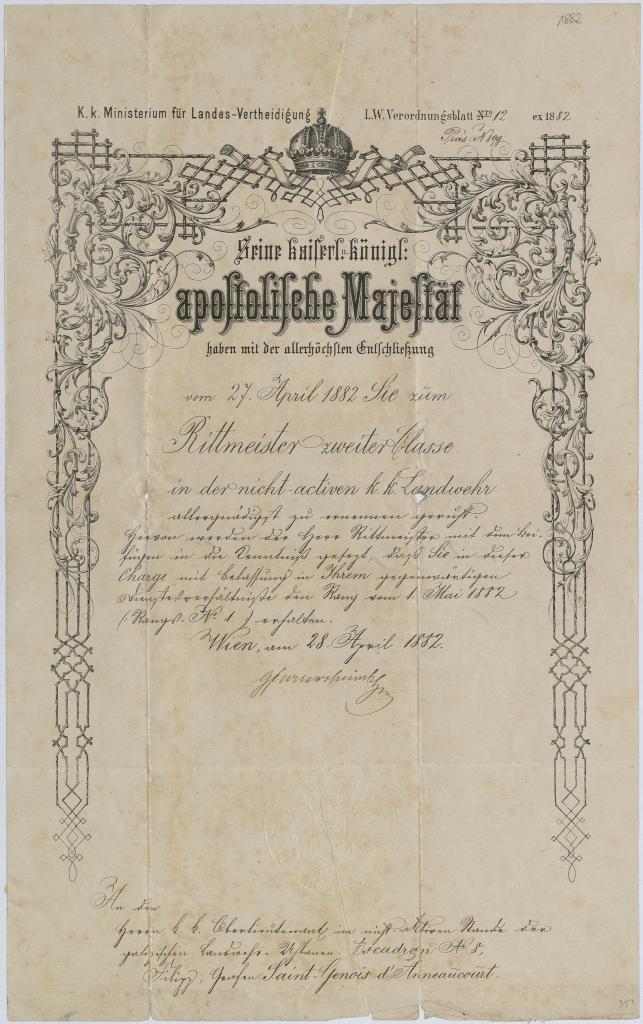 1882
K. k. Ministerium für Landes-Vertheidigung
L.W. Verordnungsblatt Nro 12 ex 1882
Präs. N. 809
Seine kaiserl: königl:
apostolische Majestät
haben mit der allerhöchsten Entschließung
vom 27. April 1882 Sie zum
Rittmeister zweiter Classe
in der nicht-activen k. k. Landwehr
allergnädigst zu ernennen geruht.
Hievon werden der Herr Rittmeister mit dem Bei-
fügen in die Kenntniß gesezt, daß Sie in dieser
Charge mit Belassung in Ihrem gegenwärtigen
Dienstesverhältniße den Rang vom 1. Mai 1882
(: Rangs. No 1 :) erhalten.
Wien, am 28. April 1882.
An den
Herrn k. k. Oberlieutenant im nicht-aktiven Stande der
galizischen Landwehr-Uhlanen-Escadron No 8,
Filipp, Grafen Saint-Genois d'Anneaucourt.
35